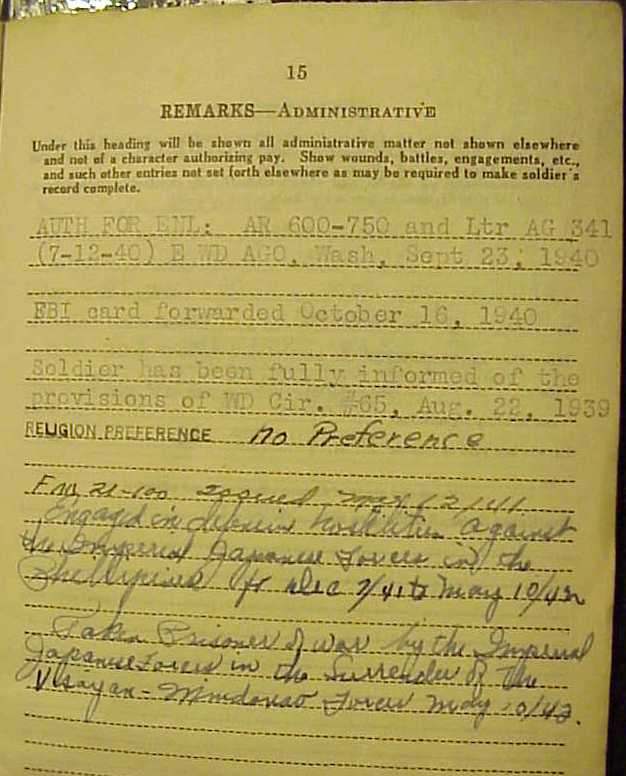 15
REMARKS—ADMINISTRATIVE
Under this heading will be shown all administrative matter not shown elsewhere
and not of a character authorizing pay. Show wounds, battles, engagements, etc.,
and such other entries not set forth elsewhere as may be required to make soldier's
record complete.
AUTH FOR ENL: AR 600-750 and Ltr AG 341
(7-12-40) E WD AGO, Wash, Sept 23, 1940
FBI card forwarded October 16, 1940
Soldier has been fully informed of the
provisions of WD Cir. #65, Aug. 22, 1939
RELIGION PREFERENCE no Preference
FM 21-100 issued
Engaged in hostilities against
the Imperial Japanese Forces in the
Phillipines fr Dec 7/41 to May 10/42
Taken Prisoner of war by the Imperial
Japanese Forces in the Surrender of the
Visayan-Mindanao Forces May 10/42.